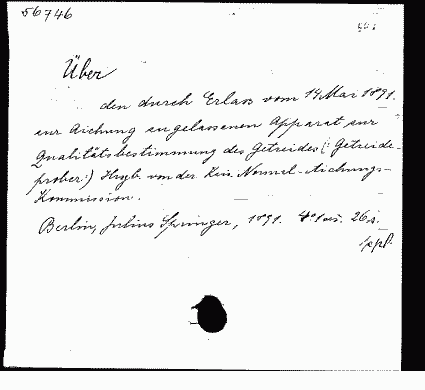 56746
Über
den durch Erlass vom 14 Mai 1891.
zur Aichung zugelassenen Apparat zur
Qualitätsbestimmung des Getreides (: Getreide-
prober:) Hrgb. von der Kais. Normal-Aichungs-
Kommission.
Berlin, Julius Springer, 1891. 4° 26 S.